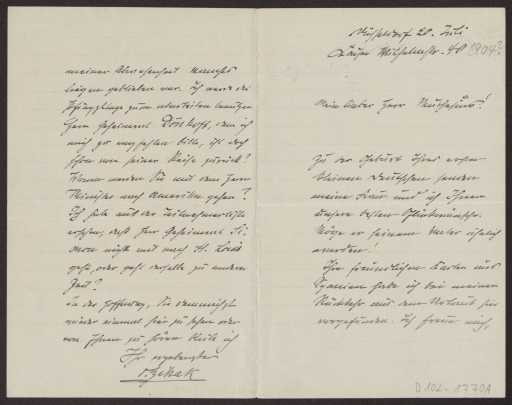 Düsseldorf 20. Juli
Kaiser Wilhelmstr. 48 1904?
Mein lieber Herr
Zu der Geburt Ihres ersten
kleinen Deutschen senden
meine Frau und ich Ihnen
unsere besten Glückwünsche.
Möge er seinem Vater ähnlich
werden!
Ihre freundlichen Karten aus
Spanien habe ich bei meiner
Rückkehr aus dem Urlaub hier
vorgefunden. Ich freue mich,
meiner Abwesenheit manches
liegen geblieben war. Ich werde die
zum arbeiten benutzen
Herr Geheimrat Dönhoff, dem ich
mich zu empfehlen bitte, ist doch
schon von seiner Reise zurück?
Wann werden Sie mit dem Herrn
Minister nach Amerika gehen?
Ich habe aus der Teilnehmerliste
ersehen, daß Herr Geheimrat Si-
mon nicht mit nach St. Louis
geht, oder geht derselbe zu anderer
Zeit?
In der Hoffnung, Sie demnächst
wieder einmal hier zu sehen oder
von Ihnen zu hören bleibe ich
Ihr ergebenster
D 102-1770A